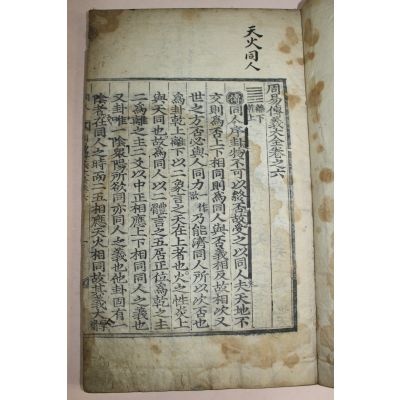 天火同人
周易傳義大全卷之六
離下乾上
傳同人序卦物不可以終否故受之以同人夫天地不
交則爲否上下相同則爲同人與否義相反故相次又
世之方否必與人同力乃能濟同人所以次否也
爲卦乾上離下以二象言之天在上者也火之性炎上
與天同也故爲同人以二體言之五居正位爲乾之主
二爲離之主二爻以中正相應上下相同同人之義也
又卦唯一陰衆陽所欲同亦同人之義也他卦固有一
陰者在同人之時而二五相應天火相同故其義大